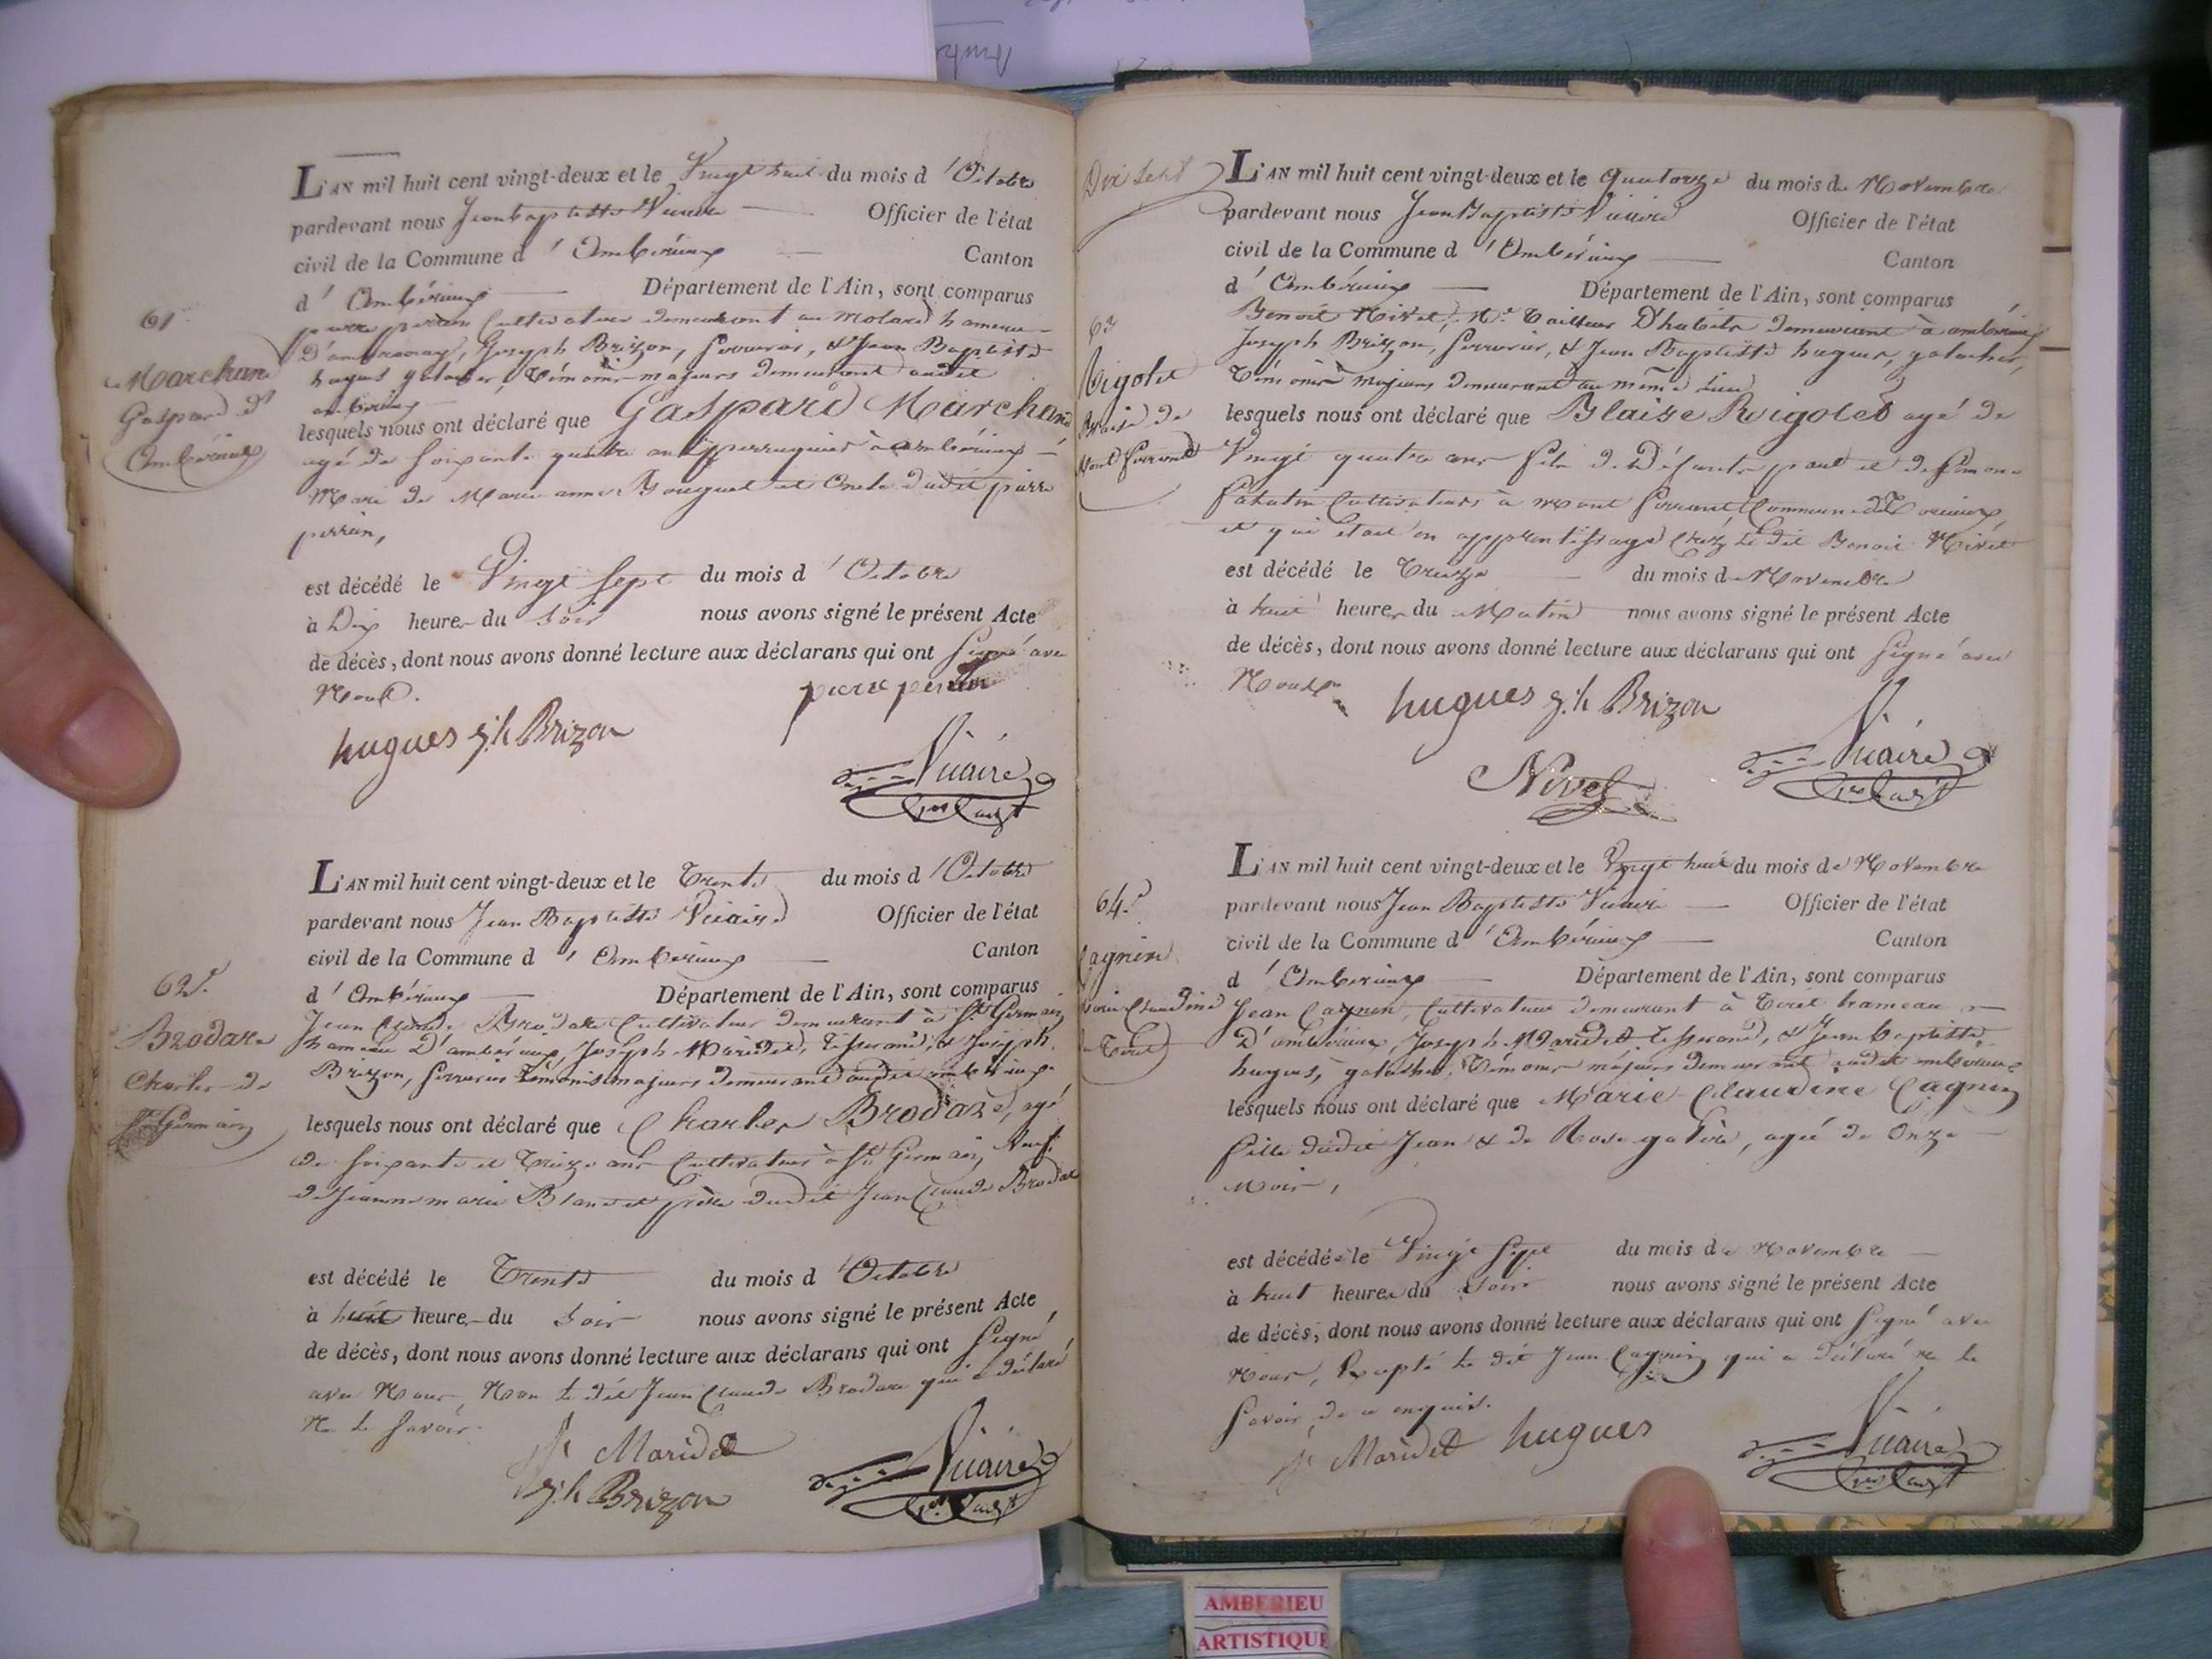 L'AN mil huit cent vingt-deux et le Vingt huit du mois d'Octobre
pardevant nous Jean baptiste Vicaire Officier de l'état
civil de la Commune d'Ambérieux Canton
d'Ambérieux Département de l'Ain, sont comparus
pierre perrin Cultivateur demeurant au Molard hameau
Joseph Brizon, serrurier, & Jean Baptiste
hugues galocher, témoins majeurs demeurant audit
ambérieux
61
Marchand
Gaspard d'
Ambérieux
lesquels nous ont déclaré que Gaspard Marchand
agé de soixante quatre ans perruquier à ambérieux
Mari de Marie anne Bouguet et Oncle dudit pierre
perrin,
est décédé le Vingt Sept du mois d'Octobre
à Dix heures du Soir nous avons signé le présent Acte
de décès, dont nous avons donné lecture aux déclarans qui ont signé avec
Nous.
pierre perrin
hugues j.h Brizon
Vicaire
L'AN mil huit cent vingt-deux et le Trente du mois d'Octobre
pardevant nous Jean Baptiste Vicaire Officier de l'état
civil de la Commune d'Ambérieux Canton
d'Ambérieux Département de l'Ain, sont comparus
Jean Claude Brodard Cultivateur demeurant à St Germain
hameau D'ambérieux, Joseph Maridet, tisserand, & Joseph
Brizon, serrurier témoins majeurs demeurant audit ambérieux
62e
Brodard
Charles de
St Germain
lesquels nous ont déclaré que Charles Brodard, agé
de soixante et treize ans Cultivateur à St Germain, Veuf
de Jeanne marie Blanc et père dudit Jean Claude Brodard
est décédé le Trente du mois d'Octobre
à huit heures du Soir nous avons signé le présent Acte
de décès, dont nous avons donné lecture aux déclarans qui ont signé
avec Nous, Non le dit Jean Claude Brodard qui a déclaré
Ne le savoir.
Maridet
j.h Brizon
Vicaire
Dix Sept
L'AN mil huit cent vingt-deux et le Quatorze du mois de Novembre
pardevant nous Jean Baptiste Vicaire Officier de l'état
civil de la Commune d'Ambérieux Canton
d'Ambérieux Département de l'Ain, sont comparus
Benoit Nivet, Tailleur D'habits demeurant à ambérieux
Joseph Brizon, serrurier, & Jean Baptiste hugues, galocher,
témoins majeurs demeurant au même lieu
63
Rigolet
Blaise de
Mont ferrand
lesquels nous ont déclaré que Blaise Rigolet agé de
Vingt quatre ans fils de Défunts paul et de Simone
Cultivateurs à mont ferrand Commune de
et qui était en apprentissage chez le dit Benoit Nivet
est décédé le Treize du mois de Novembre
à huit heures du Matin nous avons signé le présent Acte
de décès, dont nous avons donné lecture aux déclarans qui ont signé avec
Nous
hugues j.h Brizon
Nivet
Vicaire
L'AN mil huit cent vingt-deux et le Vingt huit du mois de Novembre
pardevant nous Jean Baptiste Vicaire Officier de l'état
civil de la Commune d'Ambérieux Canton
d'Ambérieux Département de l'Ain, sont comparus
Jean Cagnin, Cultivateur demeurant à Tiret hameau
D'ambérieux, Joseph Maridet tisserand, & Jean baptiste
hugues, galocher, témoins majeurs demeurant audit ambérieux
64e
Cagnin
Marie Claudine
de Tiret
lesquels nous ont déclaré que Marie Claudine Cagnin
fille dudit Jean & de Rose, agée de Onze
Mois,
est décédée le Vingt Sept du mois de Novembre
à huit heures du Soir nous avons signé le présent Acte
de décès, dont nous avons donné lecture aux déclarans qui ont signé avec
Nous, Excepté le dit Jean Cagnin qui a déclaré ne le
savoir de ce enquis.
Maridet hugues
Vicaire
AMBERIEU
ARTISTIQUE